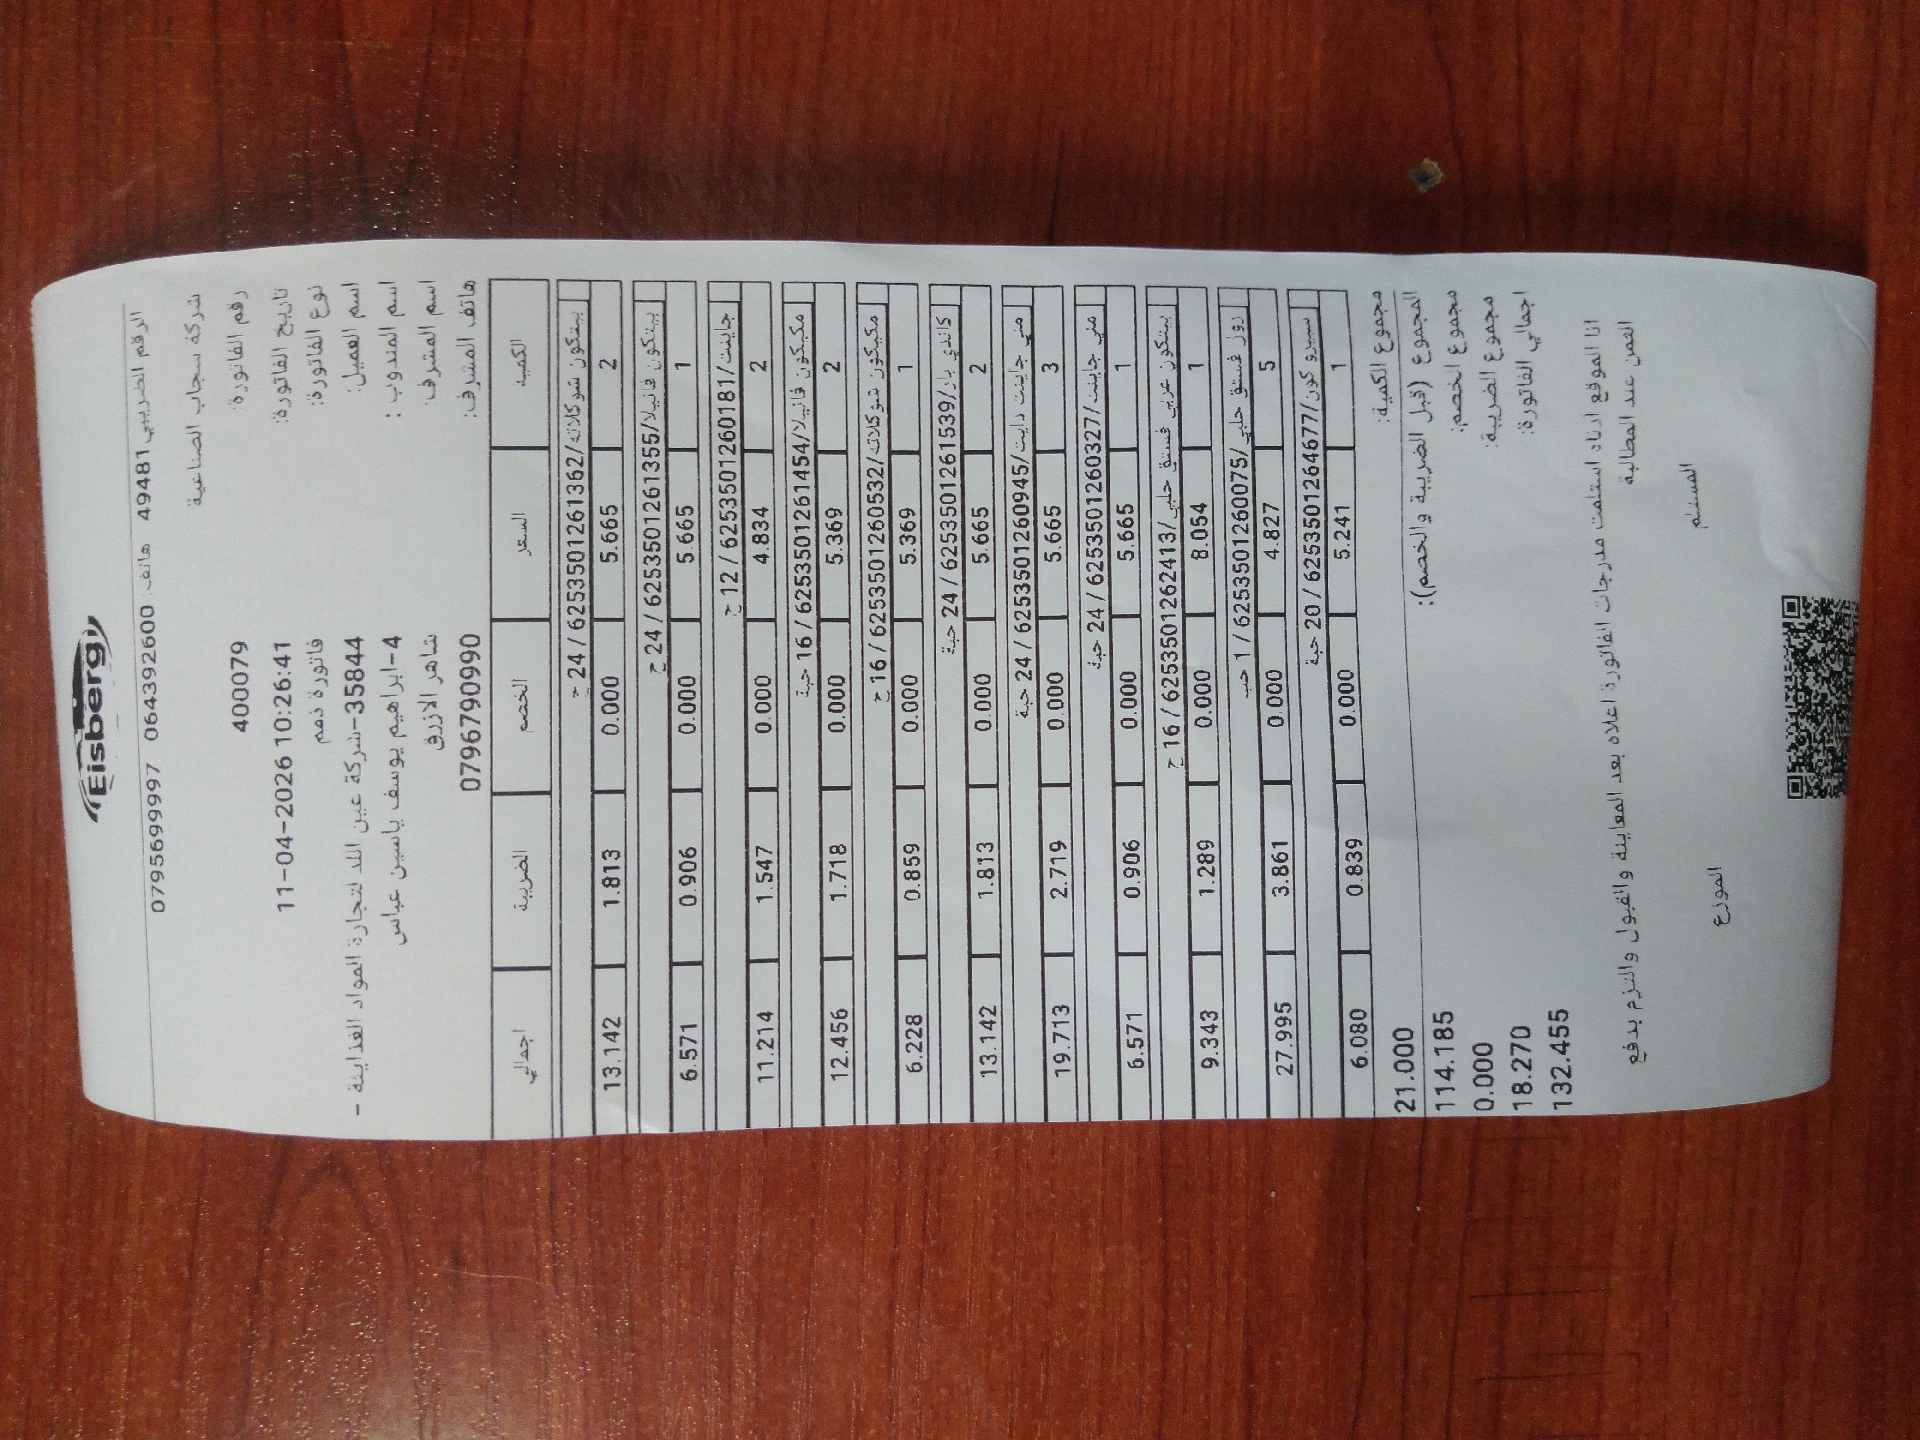 Eisberg
الرقم الضريبي 49481 هاتف: 064392600 0795699997
شركة سنجاب الصناعية
رقم الفاتورة: 400079
تاريخ الفاتورة: 11-04-2026 10:26:41
نوع الفاتورة: فاتورة ذمم
اسم العميل: 35844-شركة عين اللد لتجارة المواد الغذايئة -
اسم المندوب : 4-ابراهيم يوسف ياسين عباس
اسم المشرف: شاهر الازرق
هاتف المشرف: 0796790990
الكمية السعر الخصم الضريبة اجمالي
بيتكون شوكلاته/6253501261362 / 24 ح
2 5.665 0.000 1.813 13.142
بيتكون فانيلا/6253501261355 / 24 ح
1 5.665 0.000 0.906 6.571
جاينت/6253501260181 / 12 ح
2 4.834 0.000 1.547 11.214
مكيكون فانيلا/6253501261454 / 16 حبة
2 5.369 0.000 1.718 12.456
مكيكون شوكلاته/6253501260532 / 16 ح
1 5.369 0.000 0.859 6.228
كاندي بار/6253501261539 / 24 حبة
2 5.665 0.000 1.813 13.142
مني جاينت دايت/6253501260945 / 24 حبة
3 5.665 0.000 2.719 19.713
مني جاينت/6253501260327 / 24 حبة
1 5.665 0.000 0.906 6.571
بيتكون عربي فستق حلبي/6253501262413 / 16 ح
1 8.054 0.000 1.289 9.343
رول فستق حلبي/6253501260075 / 1 حب
5 4.827 0.000 3.861 27.995
سيرو كون/6253501264677 / 20 حبة
1 5.241 0.000 0.839 6.080
مجموع الكمية: 21.000
المجموع (قبل الضريبة والخصم): 114.185
مجموع الخصم: 0.000
مجموع الضريبة: 18.270
اجمالي الفاتورة: 132.455
انا الموقع ادناه استلمت مدرجات الفاتورة اعلاه بعد المعاينة والقبول والتزم بدفع
الثمن عند المطالبة
المستلم الموزع